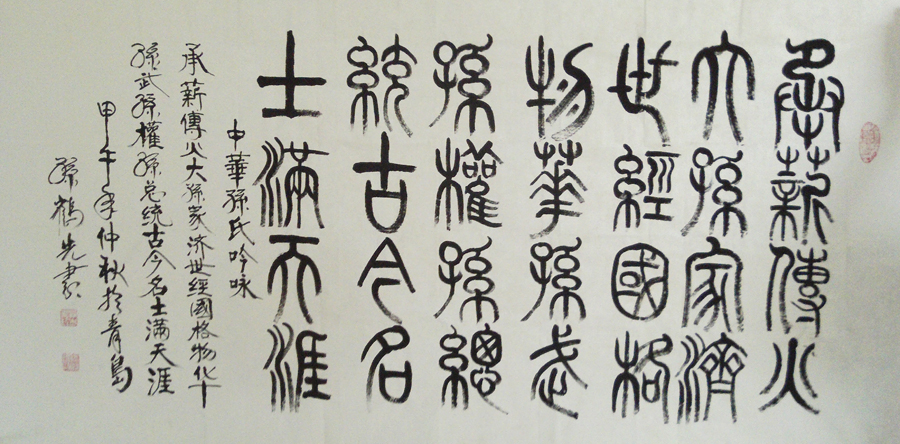 承薪傳火
大孫家濟
世經國格
物華孫武
孫權孫總
統古今名
士滿天涯
中華孫氏吟咏
承薪傳火大孫家济世經國格物华
孫武孫權孫总统古今名士满天涯
甲午年仲秋於青島
孫鶴先書